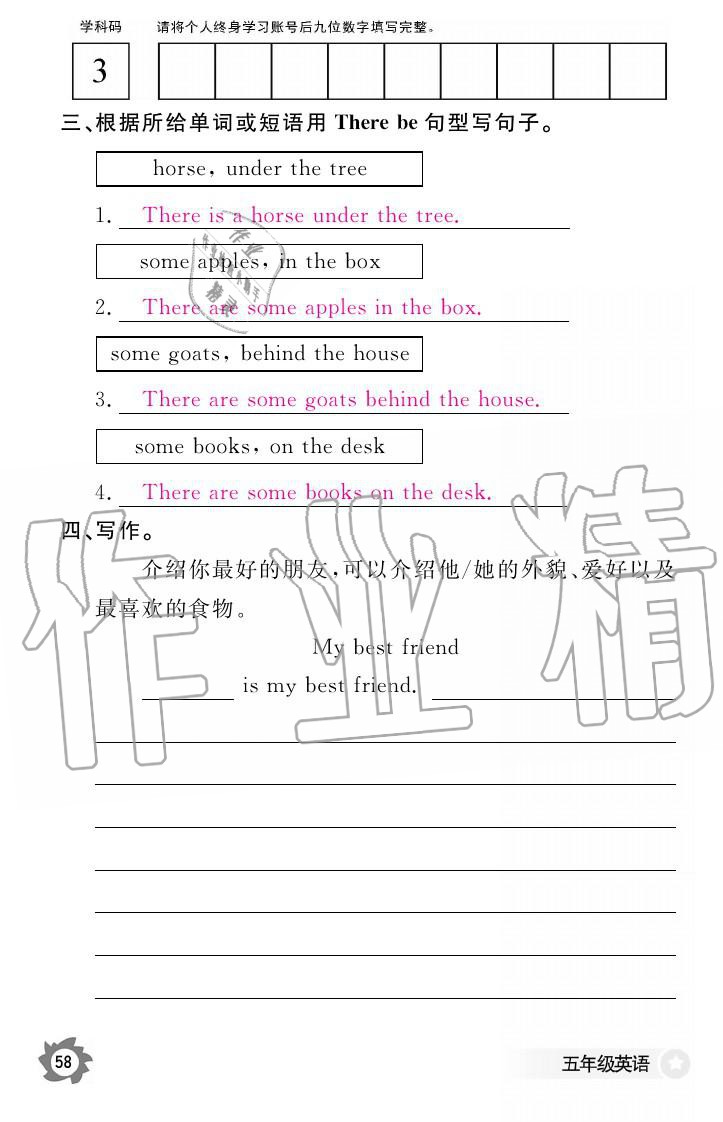 学科码 请将个人终身学习账号后九位数字填写完整。
3
三、根据所给单词或短语用 There be 句型写句子。
horse, under the tree
1. There is a horse under the tree.
some apples, in the box
2. There are some apples in the box.
some goats, behind the house
3. There are some goats behind the house.
some books, on the desk
4. There are some books on the desk.
四、写作。
介绍你最好的朋友,可以介绍他/她的外貌、爱好以及
最喜欢的食物。
My best friend
is my best friend.
作业精
58 五年级英语